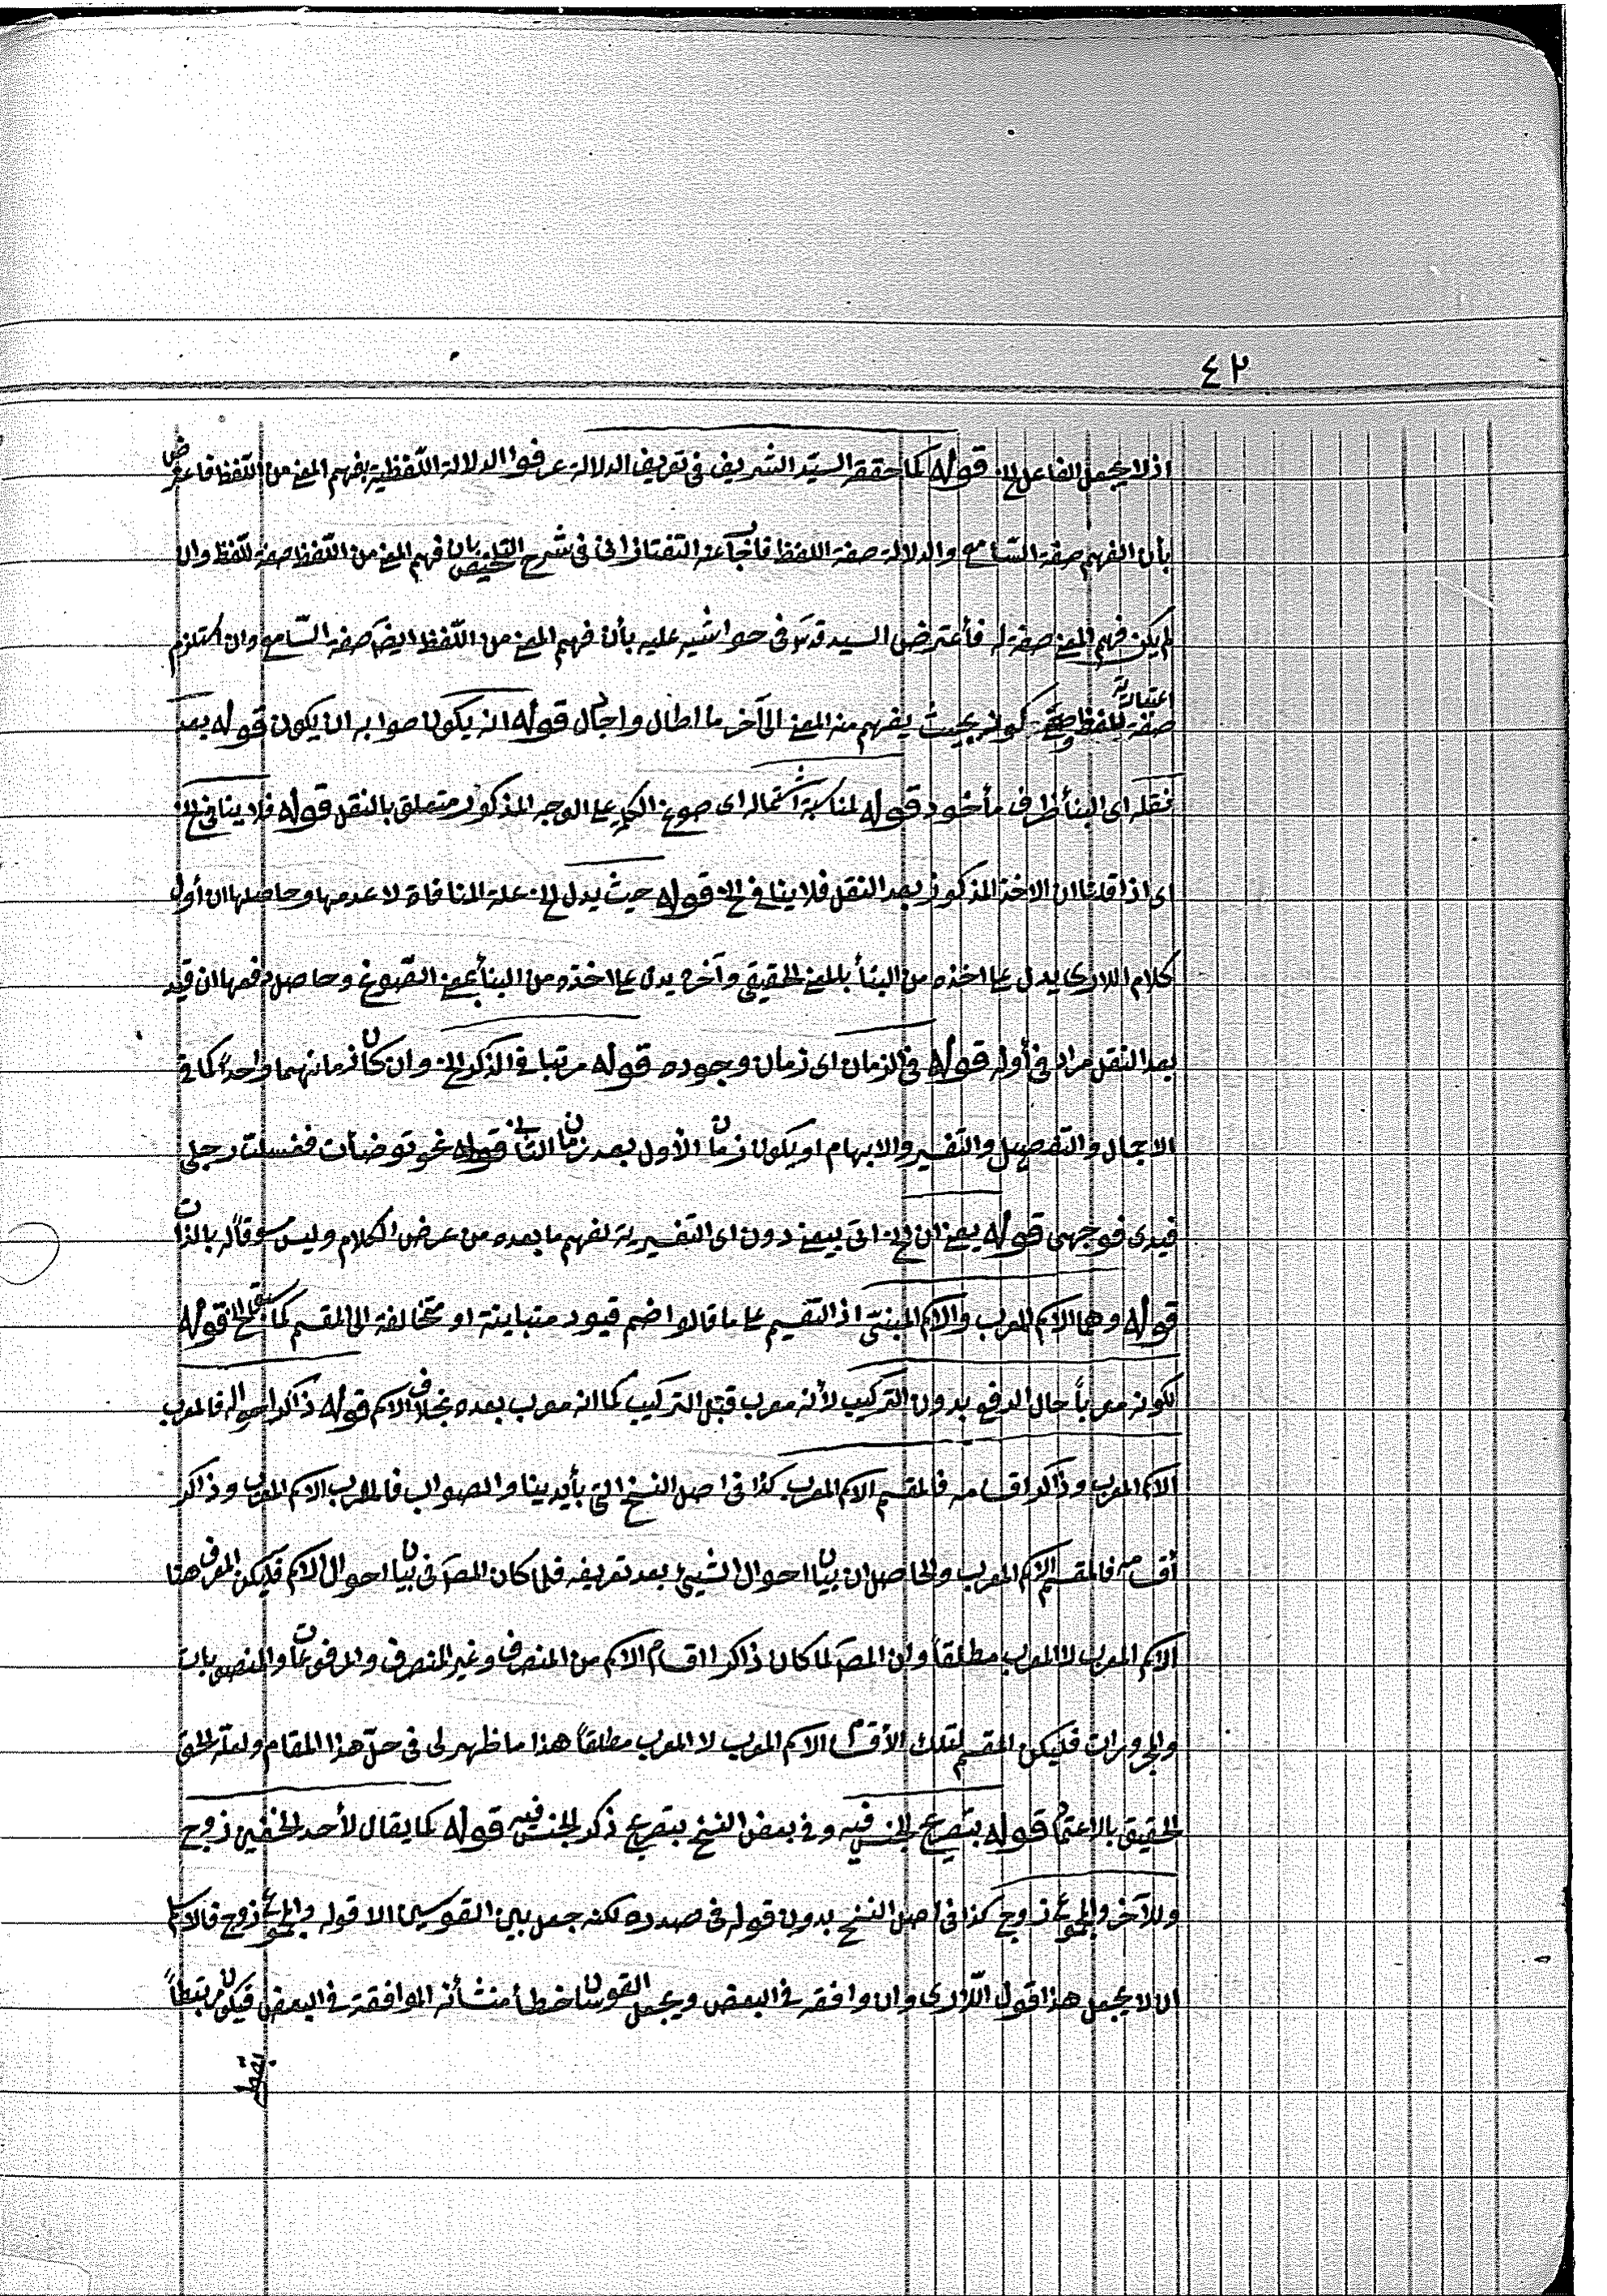 ٤٢
اذ لا يجعل الفاعل الخ قوله كما حققه السيّد الشريف فى تعريف الدلالة عرفوا الدلالة اللّفظية بفهم المعنى من اللّفظ فاعترض
بأن الفهم صفة السّامع والدلالة صفة اللفظ فاجاب عنه التفتازانى فى شرح التلخيص بان فهم المعنى من اللّفظ صفة للّفظ وان
لم يكن فهم المعنى صفة له فأعترض السيد قدس فى حواشيه عليه بأن فهم المعنى من اللّفظ ايضً صفة السّامع وان استلزم
صفة اعتبارية للفظ وهى كونه بحيث يفهم منه المعنى الى آخر ما اطال واجاب قوله انه يكون صوابه ان يكون قوله بعد
نقله اى البنأ ظرف مأخود قوله لمناسبة اشتماله اى صوغ الكلم على الوجه المذكور متعلق بالنقل قوله فلا ينافى الخ
اى اذا قلنا ان الاخذ المذكور بعد النقل فلا ينافى الخ قوله حيث يدل الخ علة المنافاة لا عدمها وحاصلها ان أول
كلام اللارى يدل على اخذه من البنأ بالمعنى الحقيقى وآخره يدل على اخذه من البنأ بمعنى الصّوغ وحاصل دفعها ان قيد
بعد النقل مراد فى أوله قوله فى الزمان اى زمان وجوده قوله مرتبا فى الذكر الخ وان كان زمانهما واحداً كما فى
الاجمال والتفصيل والتّفسير والابهام او يكون زمان الأول بعد زمان الثانى قوله نحو توضأت فغسلت رجلى
فيدى فوجهى قوله يعنى ان الخ اتى بيعنى دون اى التفسيرية لفهم ما بعده من عرض الكلام وليس مسوقاً له بالذات
قوله وهما الاسم المعرب والاسم المبنىّ اذ التقسيم على ما قالوا ضم قيود متباينة او متخالفة الى المقسم كما سبق الخ قوله
لكونه معرباً حال الدفع بدون التركيب لأنه معرب قبل التركيب كما انه معرب بعده بخلاف الاسم قوله ذاكر احواله فالمعرب
الاسم المعرب وذاكر اقسامه فالمقسم الاسم المعرب كذا فى اصل النسخ التى بأيدينا والصواب فالمعرب الاسم المعرب وذاكر
أقسامه فالمقسم الاسم المعرب والحاصل ان بيان احوال الشيئ بعد تعريفه فلما كان المصَ فى بيان احوال الاسم فليكن المعرف هنا
الاسم المعرب لا المعرب مطلقاً وان المصَ لما كان ذاكر اقسام الاسم من المنصرف وغير المنصرف والمرفوعات والمنصوبات
والمجرورات فليكن المقسم لتلك الأقسام الاسم المعرب لا المعرب مطلقاً هذا ما ظهر لى فى حلّ هذا المقام ولعله الحق
الحقيق بالاعتماد قوله بتصريح الجنس فيه وفى بعض النسخ بتصريح ذكر الجنس فيه قوله كما يقال لأحد الخفين زوج
وللآخر والمجموع زوج كذا فى اصل النسخ بدون قوله فى صدره لكنه جعل بين القوسين الا قوله والمجموع زوج فالاسلم
ان لا يجعل هذا قول اللّارى وان وافقه فى البعض ويجعل القوسان خطأ منشأنه الموافقة فى البعض فيكون مرتبطاً